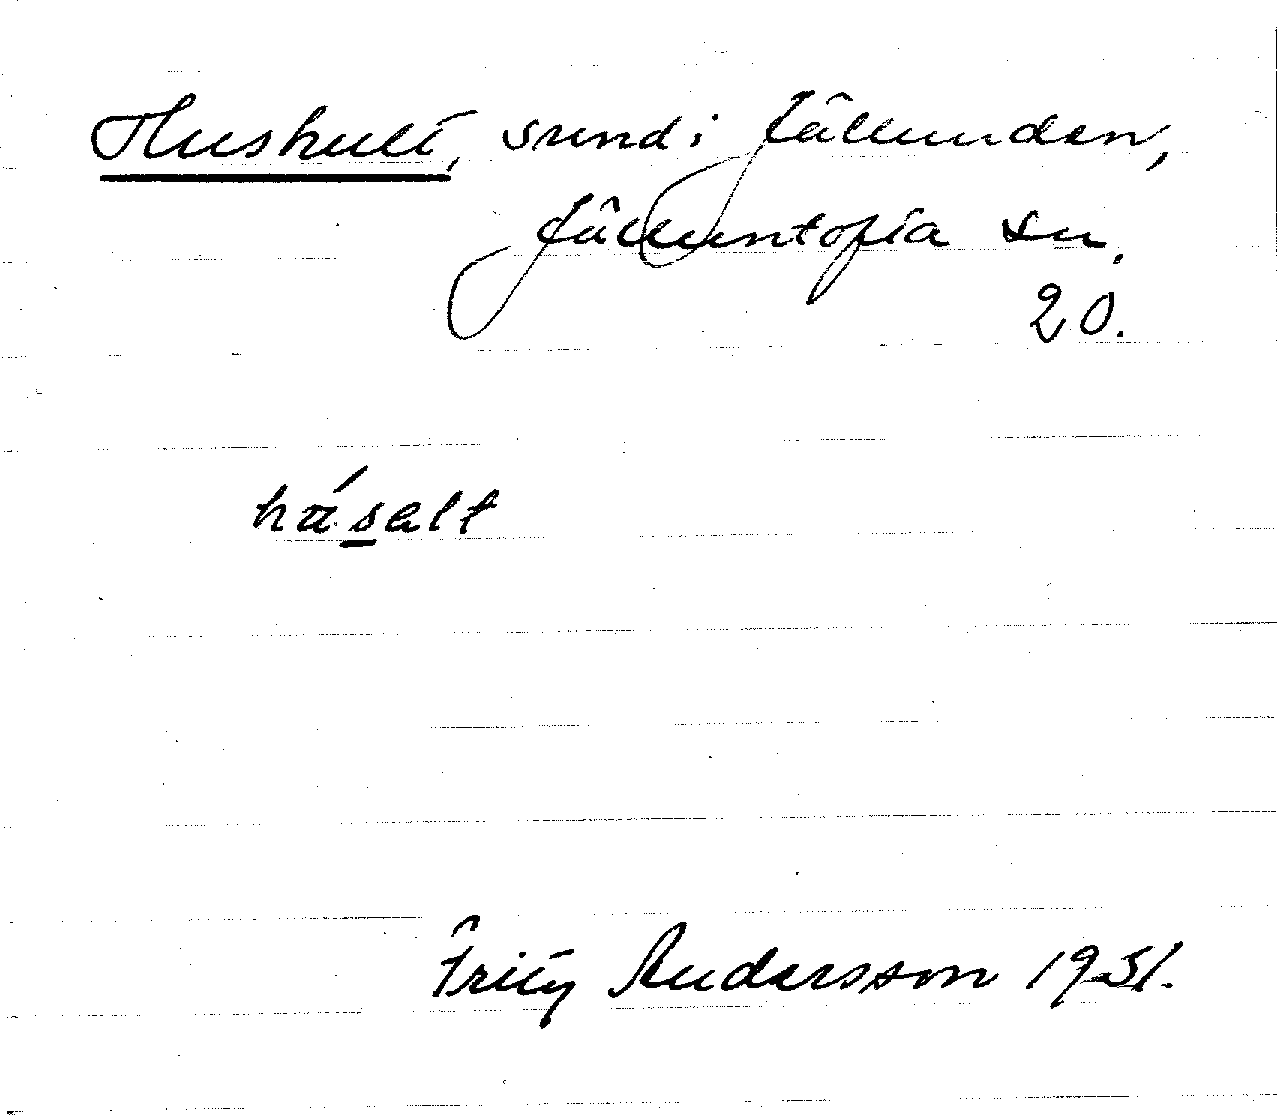 Hushult, sund i Jällunden,
Jälluntofta sn.
20.
Fritz Andersson 1931.